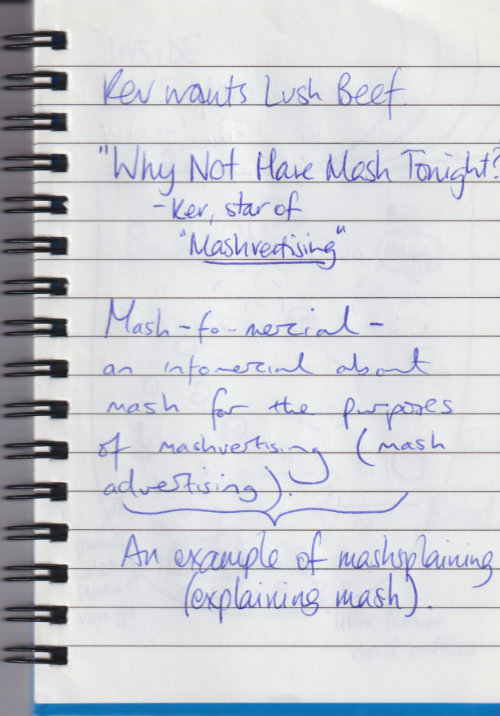 Kev wants Lush Beef
"Why Not Have Mash Tonight?
- Kev, star of
"Mashvertising"
Mash-fo-mercial -
an infomercial about
mash for the purposes
of mashvertising (mash
advertising).
An example of mashsplaining
(explaining mash).